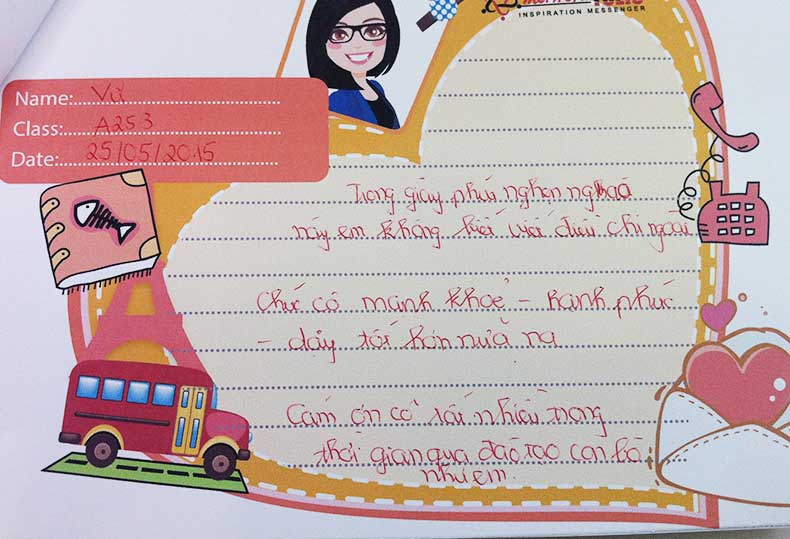 INSPIRATION MESSENGER
Name:
Class: A253
Date: 25/05/2015
Trong giây phút nghẹn nghào
này em không biết viết điều chi ngoài
Chúc cô mạnh khoẻ - hạnh phúc
- dạy tốt hơn nữa na
Cám ơn cô rất nhiều trong
thời gian qua đào tạo cán bộ
như em.